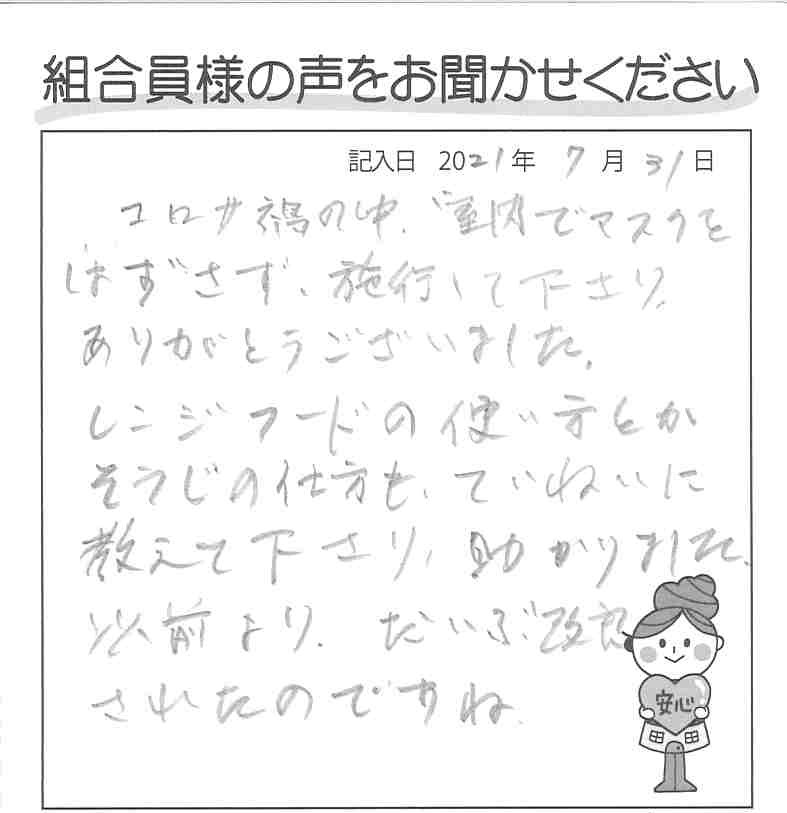 組合員様の声をお聞かせください
記入日 2021年 7月 31日
コロナ禍の中、室内でマスクを
はずさず、施行して下さり、
ありがとうございました。
レンジフードの使い方とか
そうじの仕方も、ていねいに
教えて下さり、助かりました。
以前より、だいぶ改良
されたのですね。
安心